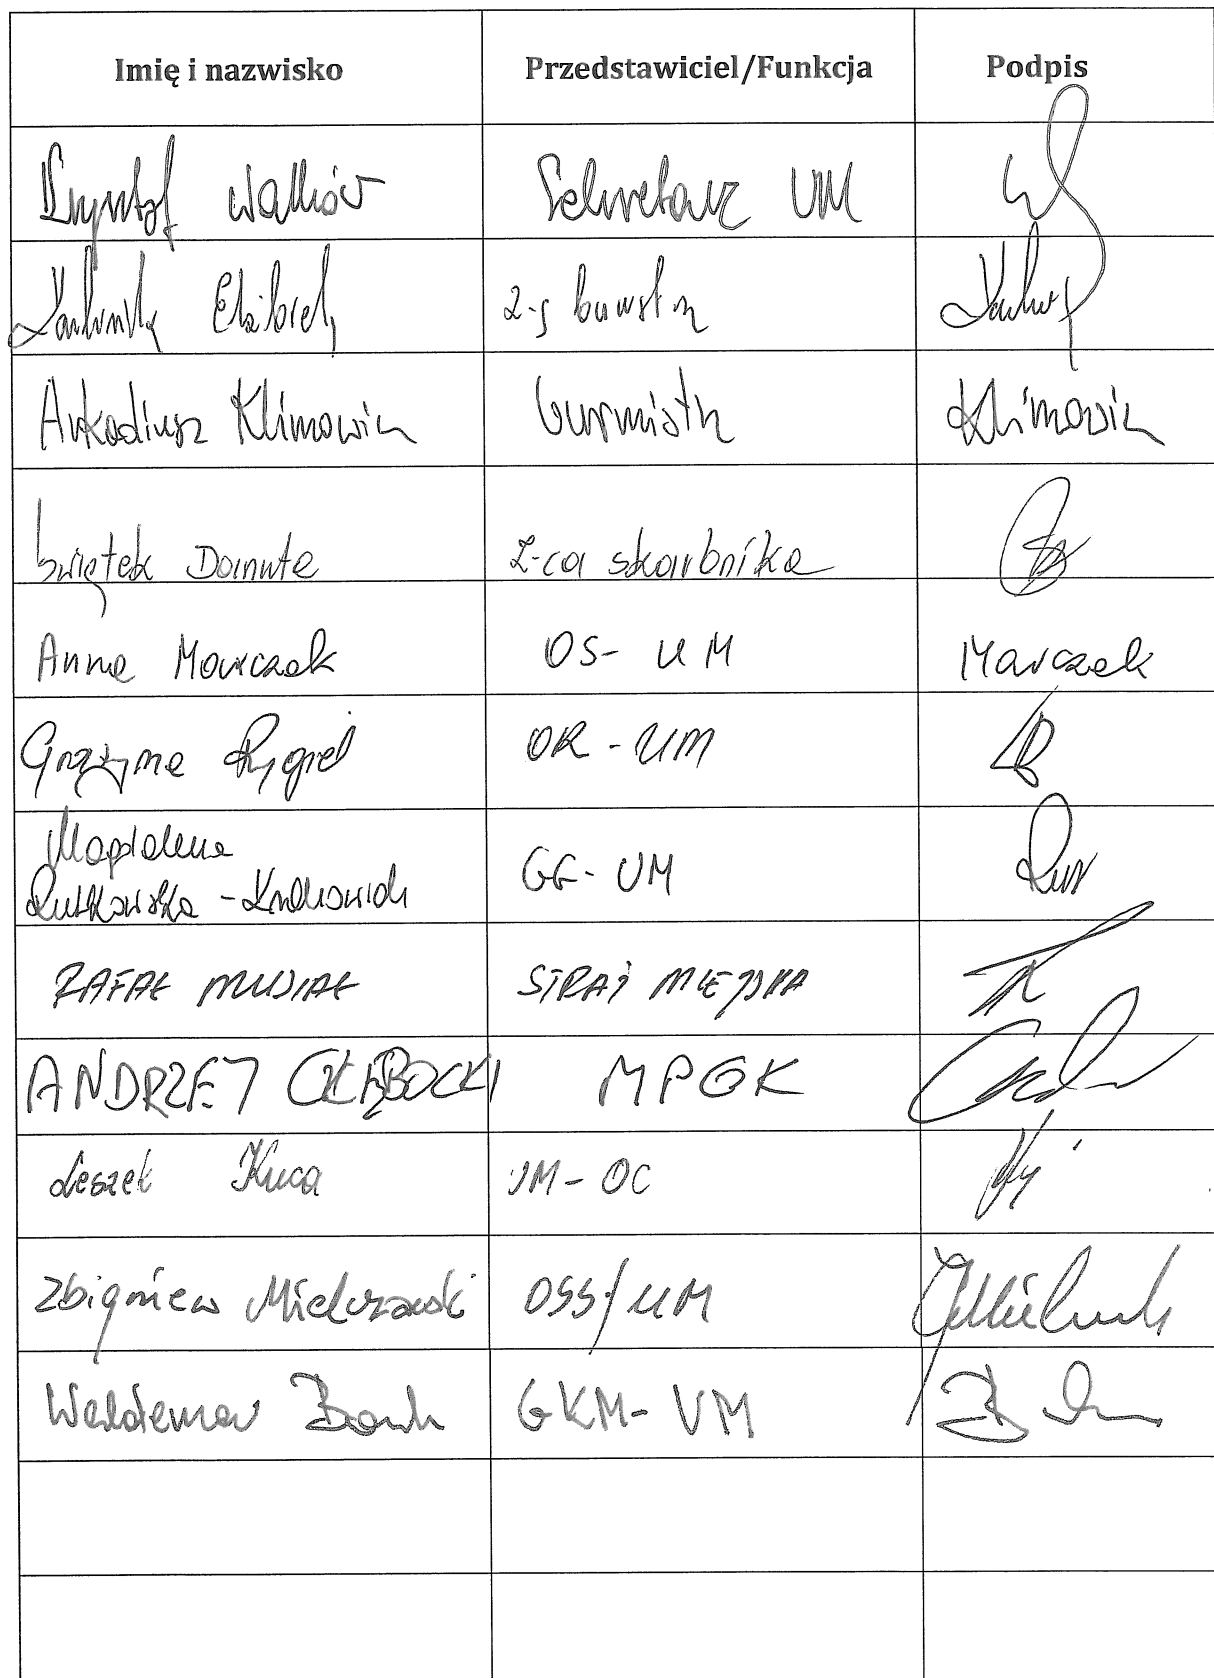 Imię i nazwisko Przedstawiciel/Funkcja Podpis
Krzysztof Walków Sekretarz UM
Elżbieta
Arkadiusz Klimowicz burmistrz Klimowicz
Świątek Danuta Z-ca skarbnika
Anna Marczak OS- UM Marczak
Grażyna Rygiel OR - UM
Magdalena
Rutkowska - GG- UM
RAFAŁ MUSIAŁ STRAŻ MIEJSKA
ANDRZEJ GŁĘBOCKI MPGK
Leszek Kuca UM - OC
Zbigniew Mielczarski OSS/UM
Waldemar GKM- UM